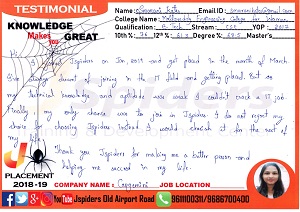 TESTIMONIAL
KNOWLEDGE
Makes You GREAT
Name: Sravani Email ID: @gmail.com
College Name: Engineering College for Women
Qualification: B.Tech Stream: CSE YOP: 2017
10th %: 76 12th %: Degree %: 68.5 Master's
I Jspiders on Jan, 2018 and got placed in the month of March.
Every student dream of joining in the IT field and getting placed. But as
my technical knowledge and aptitude was weak I couldn't crack a IT job.
Finally my only choice was to join in Jspiders. I do not regret my
choice for choosing Jspiders instead I would cherish it for the rest of
my life.
Thank you Jspiders for making me a better person and
helping me succeed in my life.
J
PLACEMENT
2018-19
COMPANY NAME: Capgemini JOB LOCATION
You Tube Jspiders Old Airport Road 9611100311/9686700400